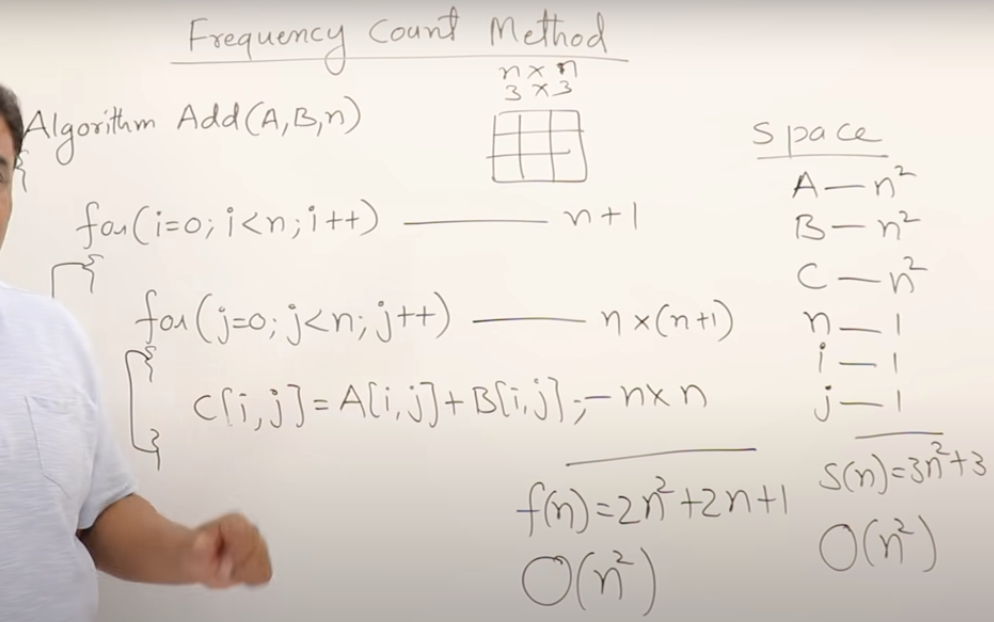 Frequency Count Method
n × n
3 × 3
Algorithm Add(A,B,n)
{
for(i=0; i<n; i++) —— n+1
{
for(j=0; j<n; j++) —— n×(n+1)
{
C[i,j] = A[i,j] + B[i,j]; — n×n
}
f(n) = 2n²+2n+1
O(n²)
Space
A — n²
B — n²
C — n²
n — 1
i — 1
j — 1
S(n)=3n²+3
O(n²)